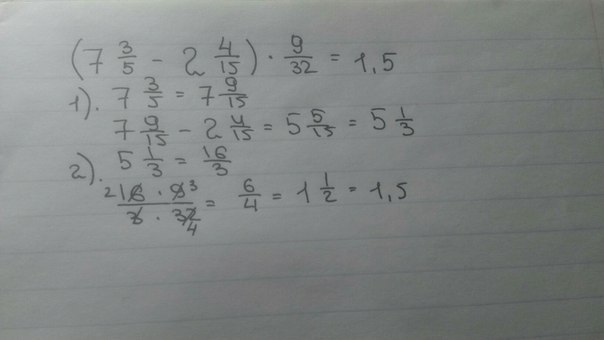 (7 3/5 - 2 4/15) · 9/32 = 1,5
1). 7 3/5 = 7 9/15
7 9/15 - 2 4/15 = 5 5/15 = 5 1/3
2). 5 1/3 = 16/3
2 16 · 9 3 / 3 · 32 4 = 6/4 = 1 1/2 = 1,5